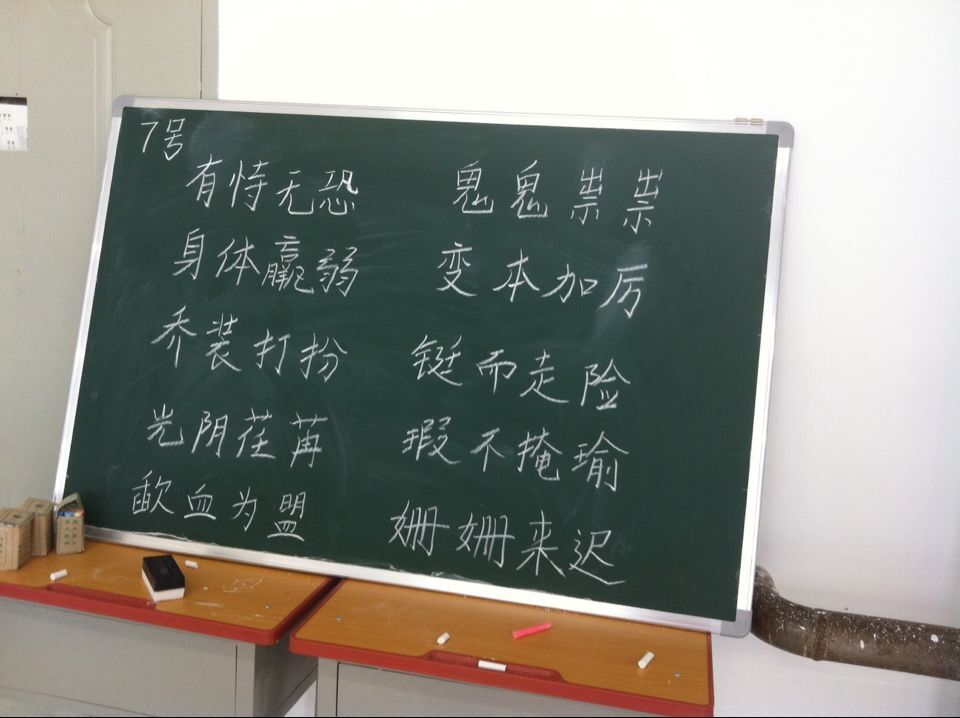 7号
有恃无恐 鬼鬼祟祟
身体羸弱 变本加厉
乔装打扮 铤而走险
光阴荏苒 瑕不掩瑜
歃血为盟 姗姗来迟